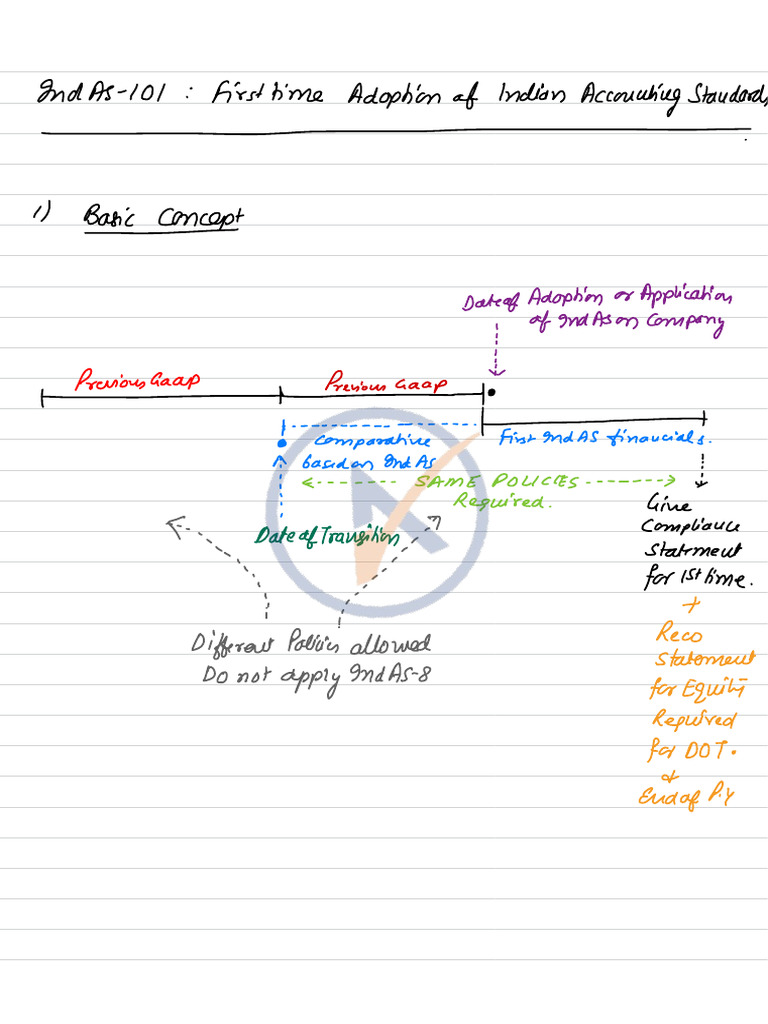 Ind As-101 : First time Adoption of Indian Accounting Standards
1) Basic Concept
Date of Adoption or Application
of Ind As on Company
Previous Gaap
Previous Gaap
Comparative
based on Ind As
First Ind AS financials.
SAME POLICIES
Required.
Date of Transition
Give
Compliance
Statement
for 1st time.
Different Policies allowed
Do not apply Ind AS-8
+
Reco
Statement
for Equity
Required
for DOT.
&
End of P.Y